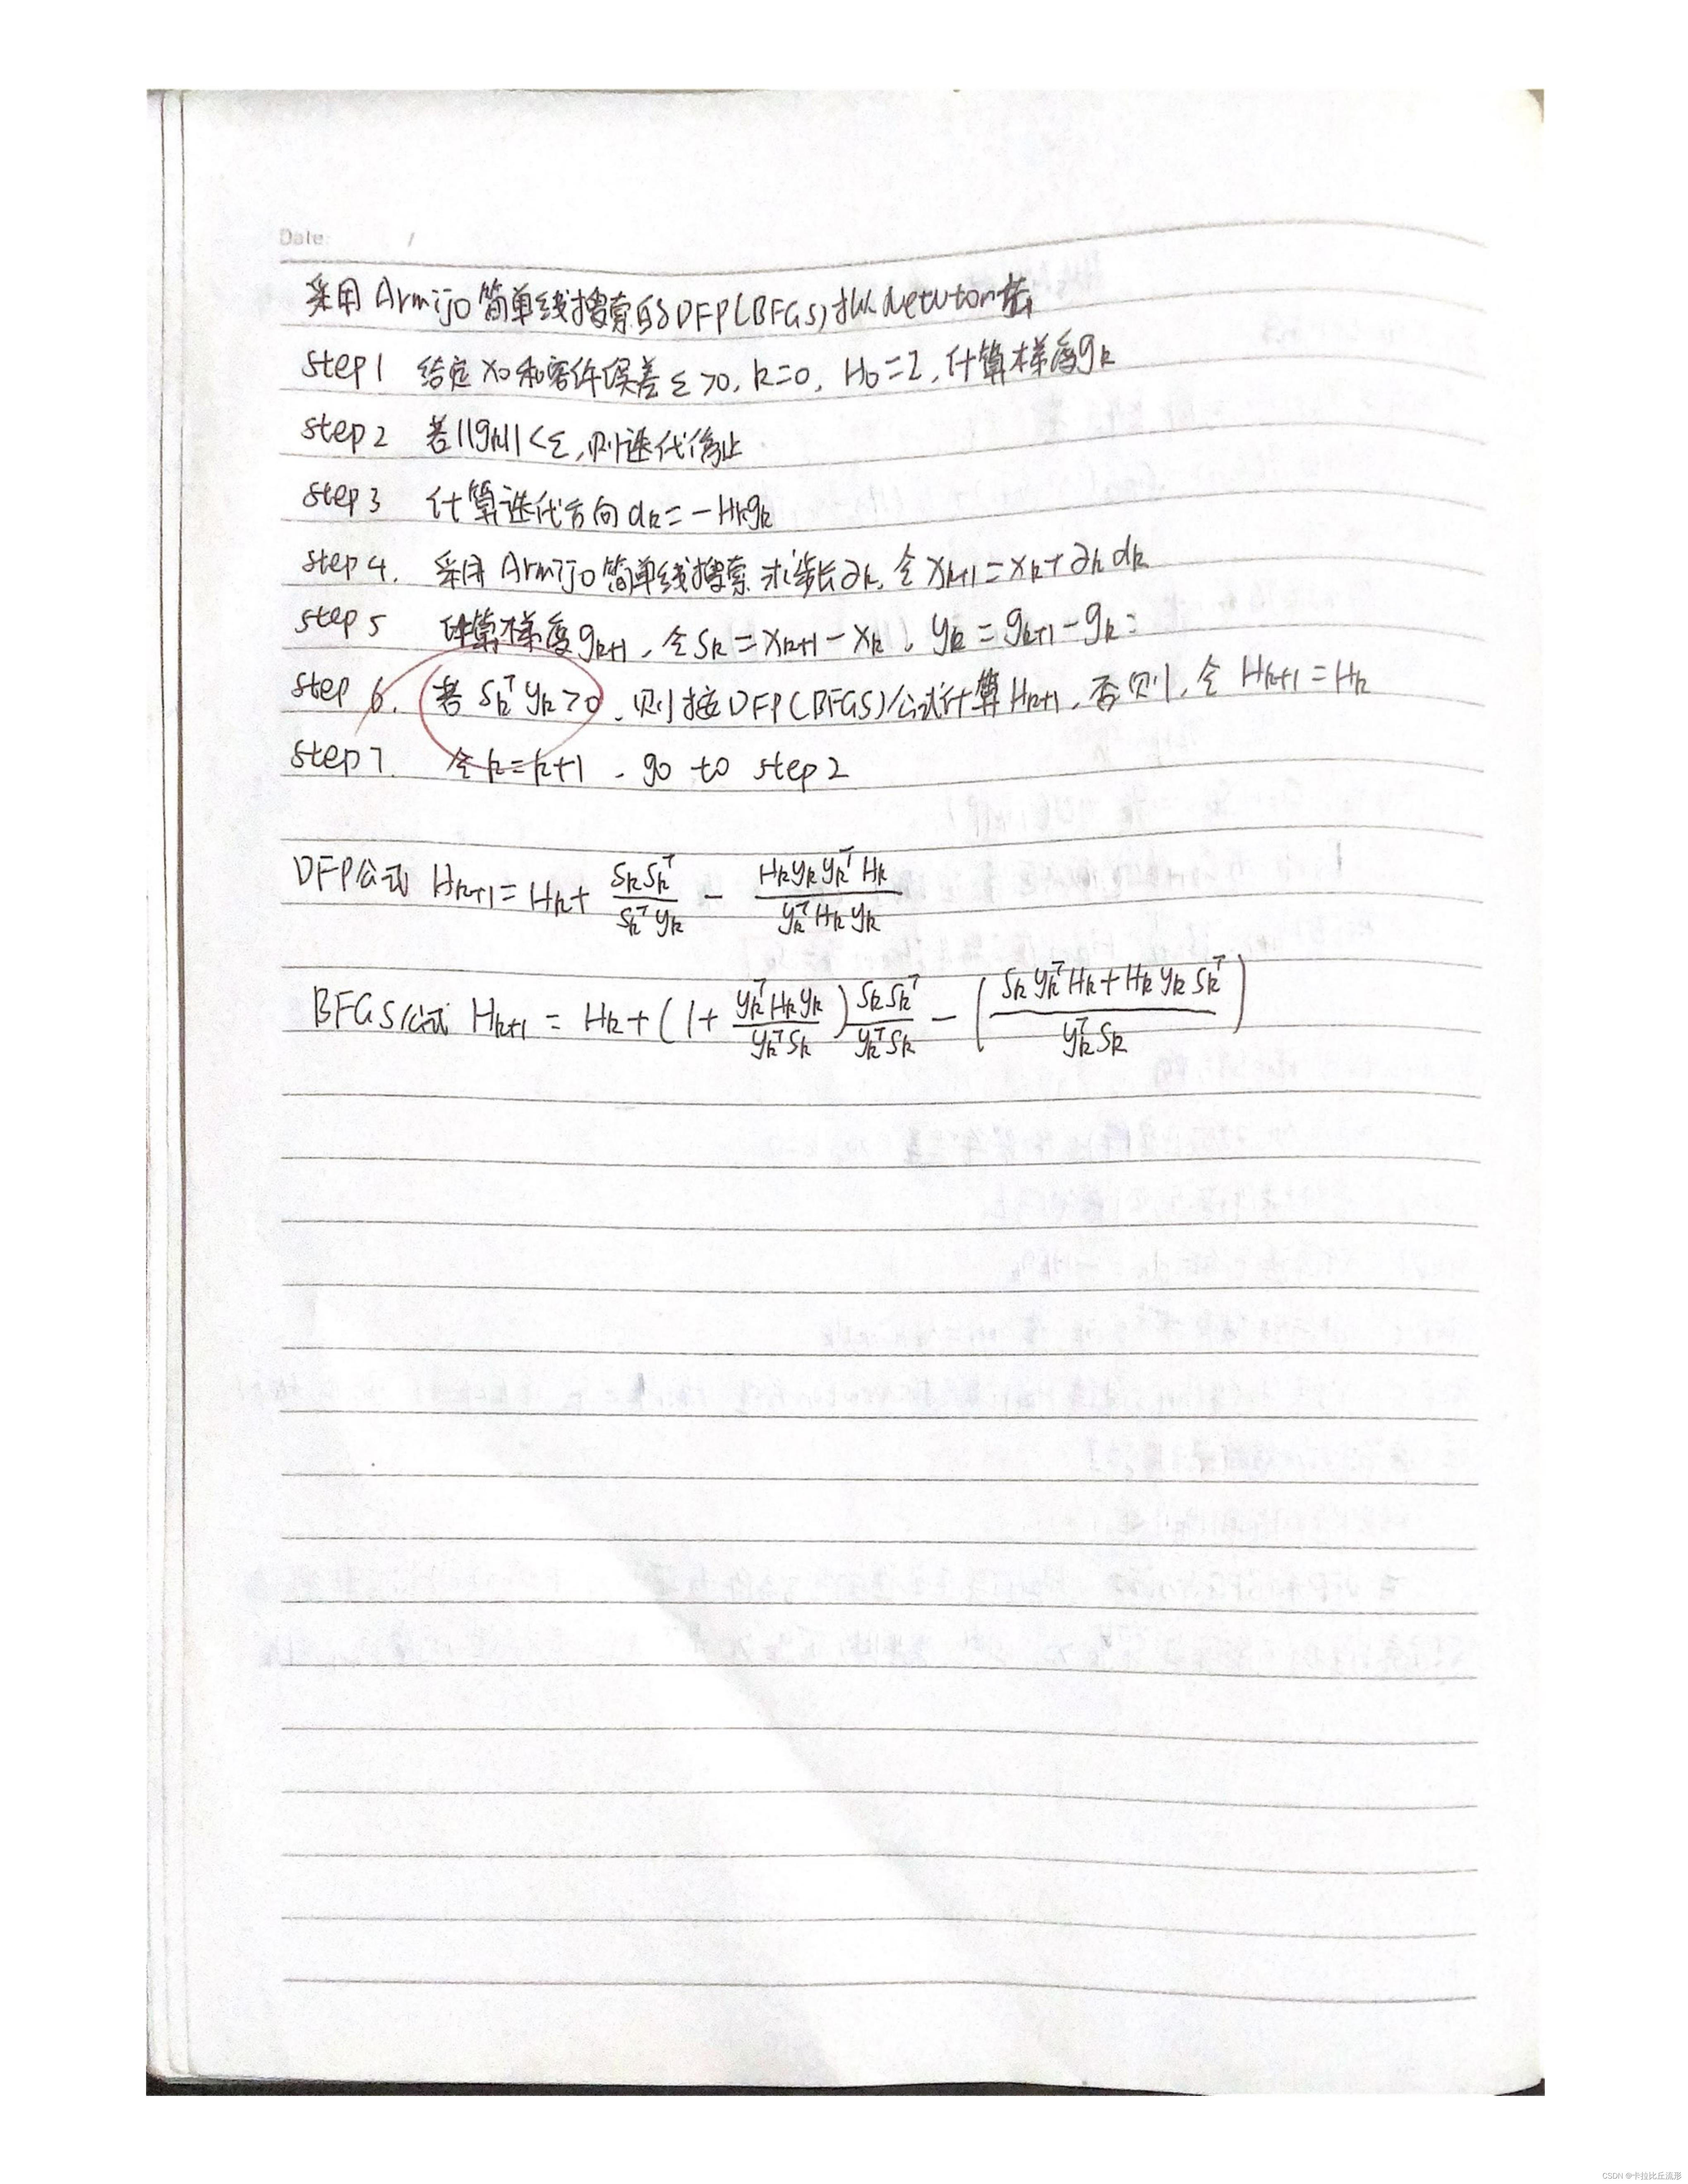 Date: /
采用 Armijo 简单线搜索的 DFP(BFGS) 拟 Newton 法
step 1 给定 x₀ 和容许误差 ε>0, k=0, H₀=I, 计算梯度 gₖ
step 2 若 ||gₖ||<ε, 则迭代停止
step 3 计算迭代方向 dₖ=-Hₖgₖ
step 4. 采用 Armijo 简单线搜索求步长 ∂ₖ, 令 xₖ₊₁=xₖ+∂ₖdₖ
step 5 计算梯度 gₖ₊₁, 令 sₖ=xₖ₊₁-xₖ, yₖ=gₖ₊₁-gₖ;
step 6. 若 sₖᵀyₖ>0, 则按 DFP(BFGS) 公式计算 Hₖ₊₁, 否则, 令 Hₖ₊₁=Hₖ
step 7. 令 k=k+1, go to step 2
DFP公式 Hₖ₊₁=Hₖ+ sₖsₖᵀ/sₖᵀyₖ - HₖyₖyₖᵀHₖ/yₖᵀHₖyₖ
BFGS公式 Hₖ₊₁=Hₖ+(1+ yₖᵀHₖyₖ/yₖᵀsₖ) sₖsₖᵀ/yₖᵀsₖ - (sₖyₖᵀHₖ+Hₖyₖsₖᵀ/yₖᵀsₖ)
CSDN @卡拉比丘流形